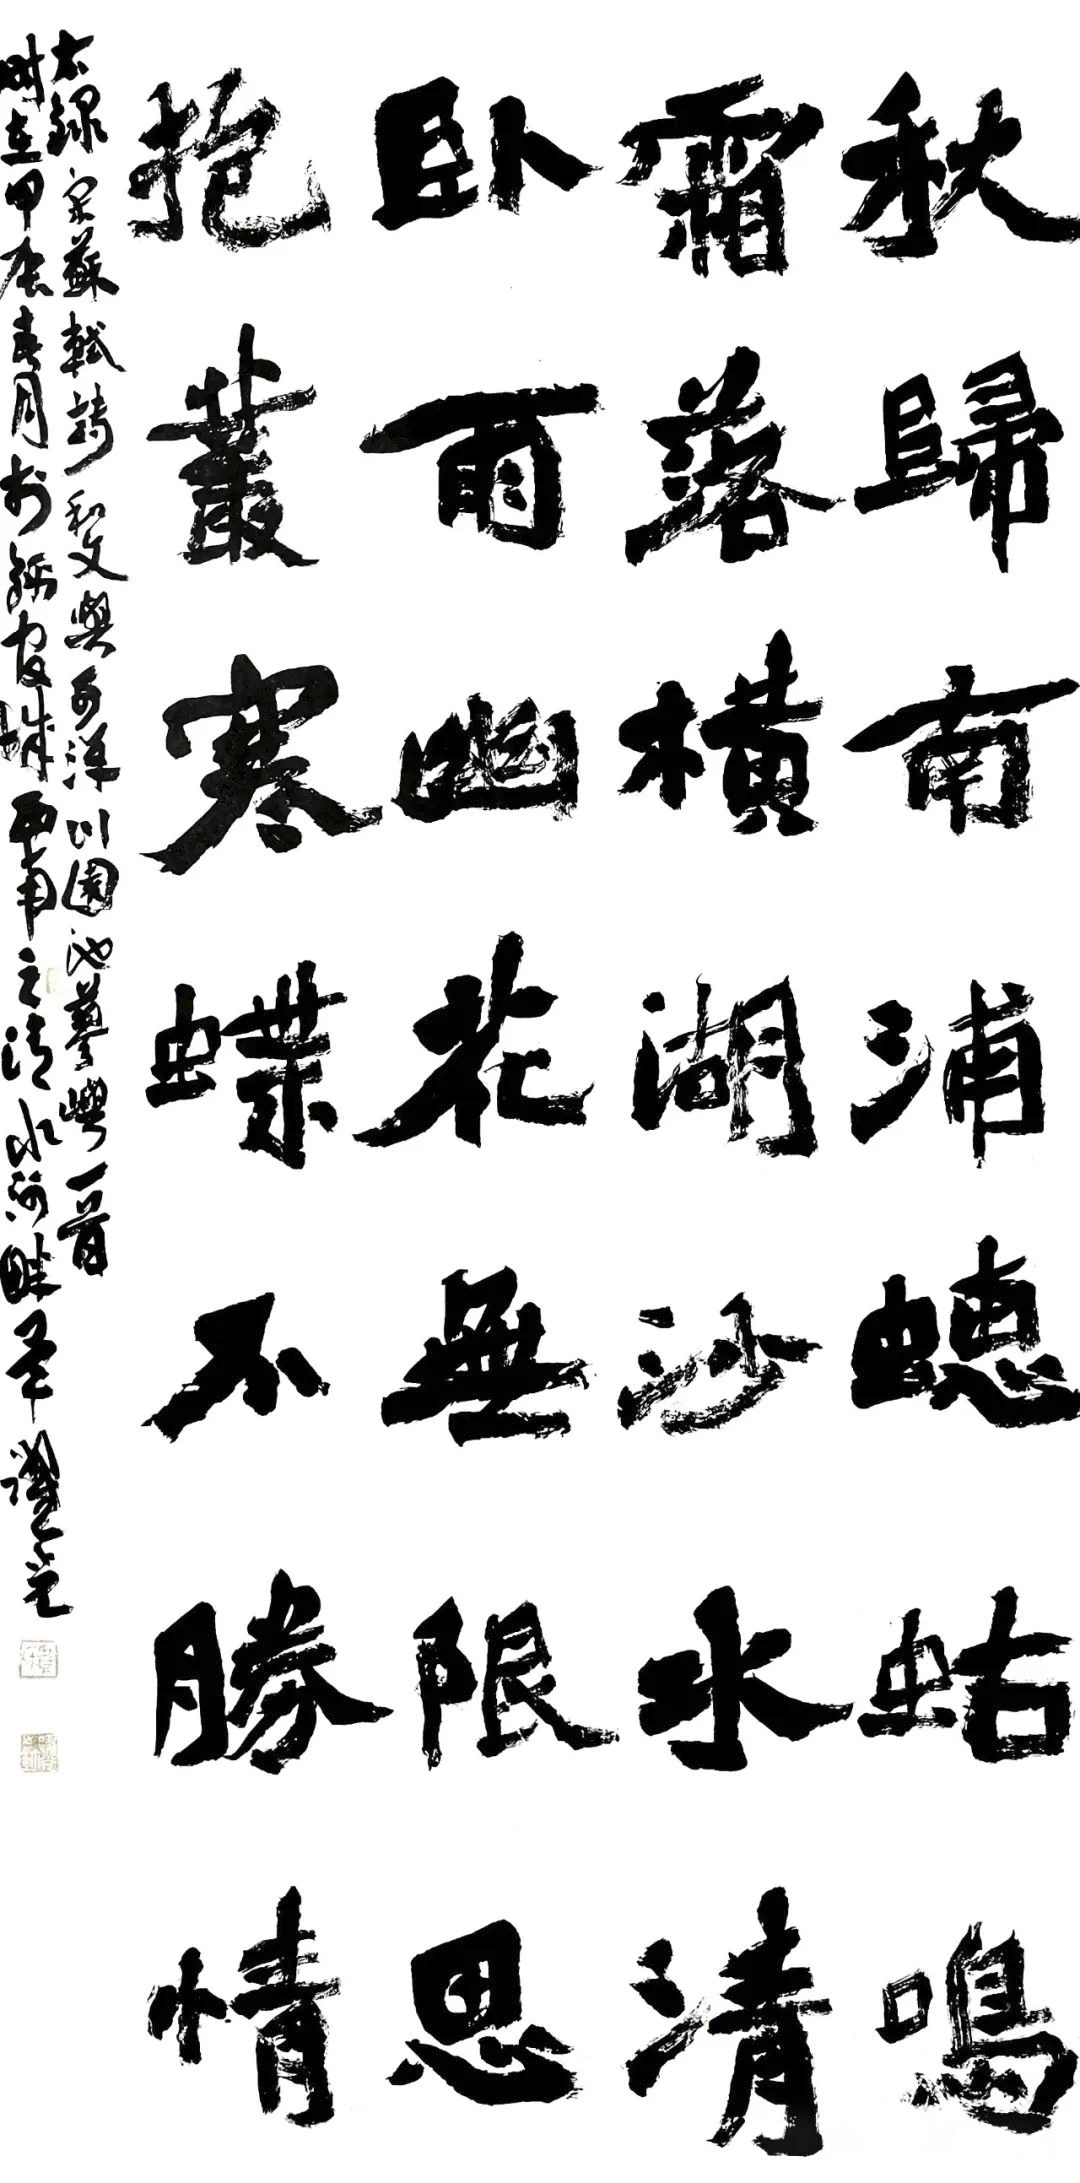 秋歸南浦蟪蛄鳴
霜落橫湖沙水清
卧雨幽花無限思
抱叢寒蝶不勝情
右錄宋蘇軾詩和文與可洋川園池蓼嶼一首
時在甲辰春月於錦官城西南之清水河畔